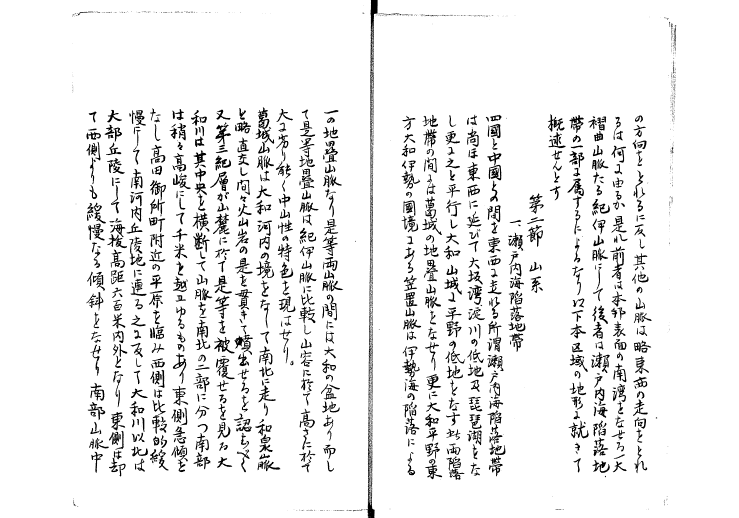 の方向をとれるに反し其他の山脈は略東西の走向をとれ
るは何に由るか是れ前者は本邦表面の南湾をなせる一大
褶曲山脈たる紀伊山脈にして後者は瀬戸内海陥落地
帯の一部に属するによるなり以下本区域の地形に就きて
概述せんとす
第二節 山系
一、瀬戸内海陥落地帯
四国と中国との間を東西に走れる所謂瀬戸内海陥落地帯
は尚ほ東西に延びて大坂湾淀川の低地及琵琶湖をな
し更に之と平行し大和山城に平野の低地をなす此両陥落
地帯の間には葛城の地塁山脈をなせり更に大和平野の東
方大和伊勢の国境にある笠置山脈は伊勢海の陥落による
一の地塁山脈なり是等両山脈の間には大和の盆地あり而し
て是等地塁山脈は紀伊山脈に比較し山容に於て高さに於て
大に劣り能く中山性の特色を現はせり。
葛城山脈は大和河内の境をなして南北に走り和泉山脈
と略直交し間々火山岩の是を貫きて噴出せるを認むべく
又第三紀層が山麓に於て是等を被覆せるを見る大
和川は其中央を横断して山脈を南北の二部に分つ南部
は稍々高峻にして千米を超ゆるものあり東側急傾を
なし高田御所町附近の平原を臨み西側は比較的緩
慢にして南河内丘陵地に連る之に反して大和川以北は
大部丘陵にして海抜高距六百米内外となり東側は却
て西側よりも緩慢なる傾斜をなせり南部山脈中